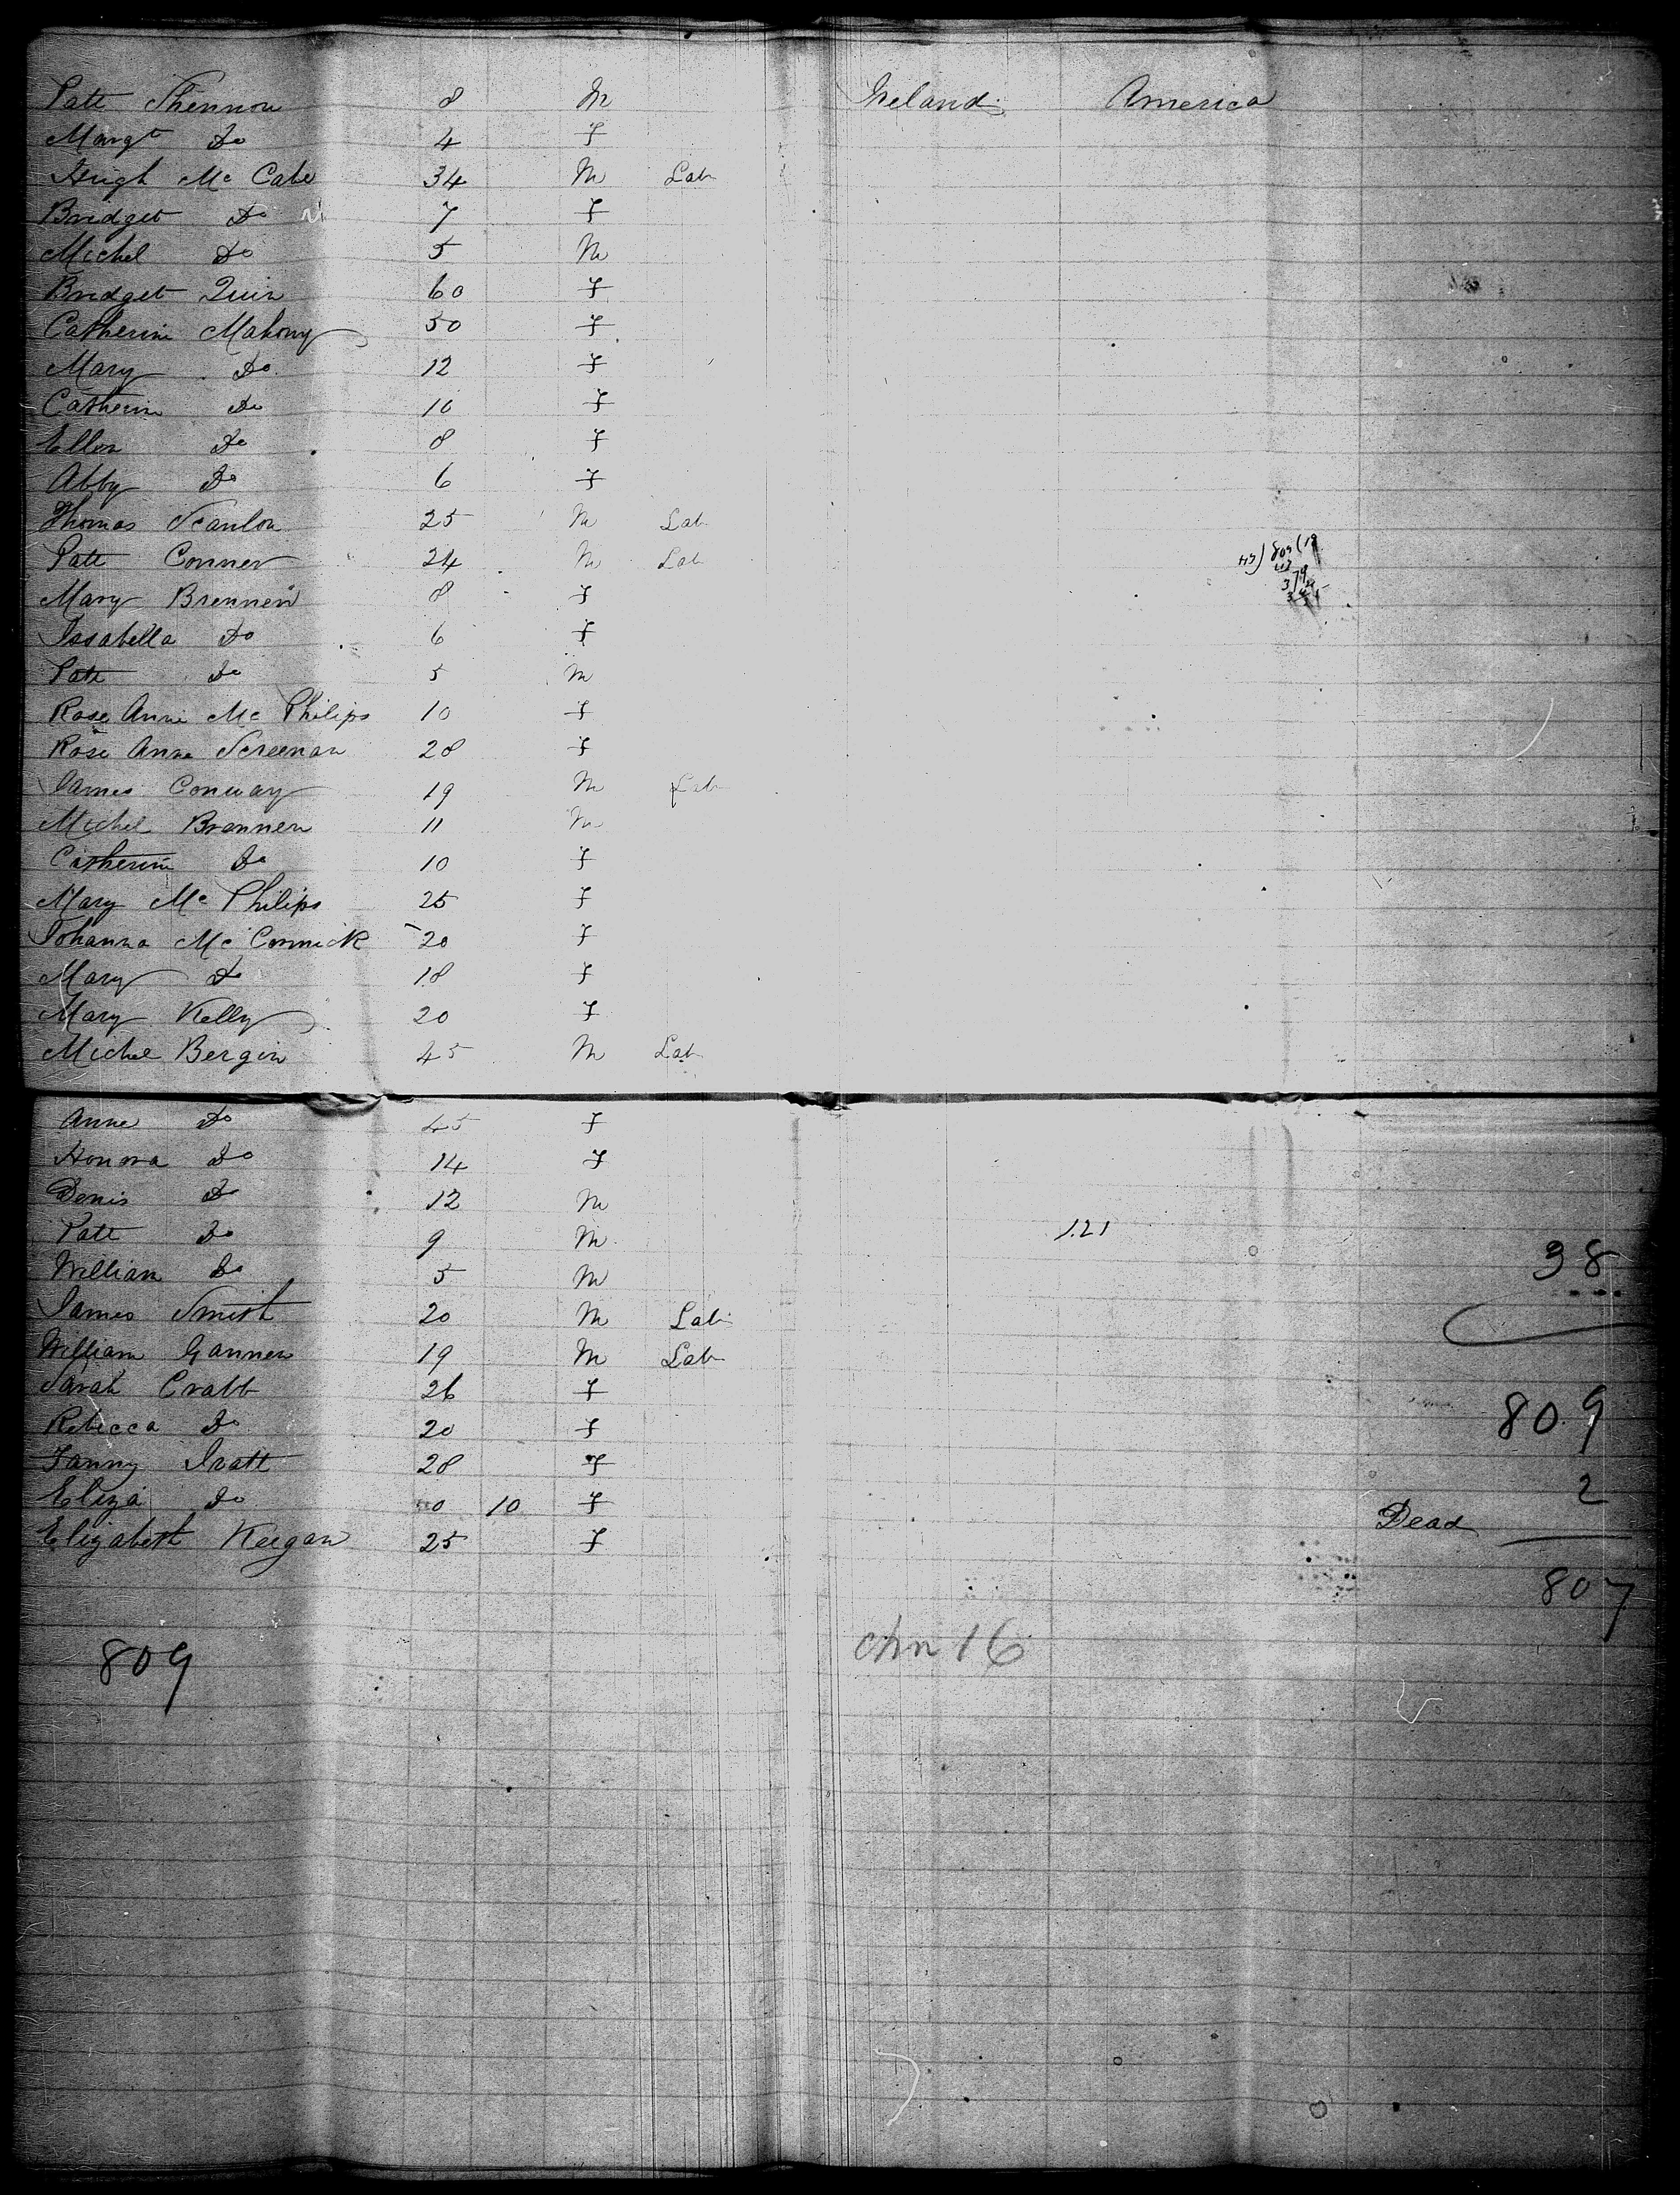 Patt Shennon 8 M Ireland America
Margt Do 4 f
Hugh Mc Cabe 34 M Lab
Bridget Do 7 f
Michel Do 5 M
Bridget Quin 60 f
Catherin Mahony 50 f
Mary Do 12 f
Catherin Do 10 f
Ellen Do 8 f
Abby Do 6 f
Thomas Scanlon 25 M Lab
Patt Conner 24 M Lab
43) 809 (18
Mary Brennen 8 f
Issabella Do 6 f
Patt Do 5 M
Rose Anne Mc Philips 10 f
Rose Anne Screenan 28 f
James Conway 19 M Lab
Michel Brennen 11 M
Catherin Do 10 f
Mary Mc Philips 25 f
Johanna Mc Cormick 20 f
Mary Do 18 f
Mary Kelly 20 f
Michel Bergin 45 M Lab
Anne Do 45 f
Honora Do 14 f
Denis Do 12 M
Patt Do 9 M 121
William Do 5 M 38
James Smith 20 M Lab
William Gannen 19 M Lab
Sarah Crabb 26 f
Rebecca Do 20 f 809
Fanny 28 f
Eliza Do 10 f 2
Dead
Elizabeth Keegan 25 f
807
chn 16
809